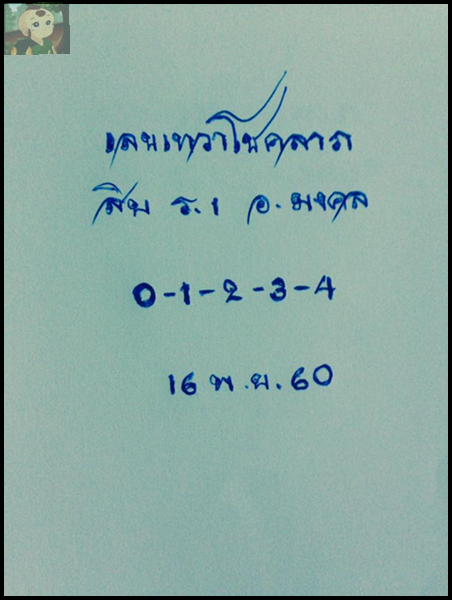 เลขเทวาโชคลาภ
สิบ ร.1 อ.มงคล
0-1-2-3-4
16 พ.ย.60